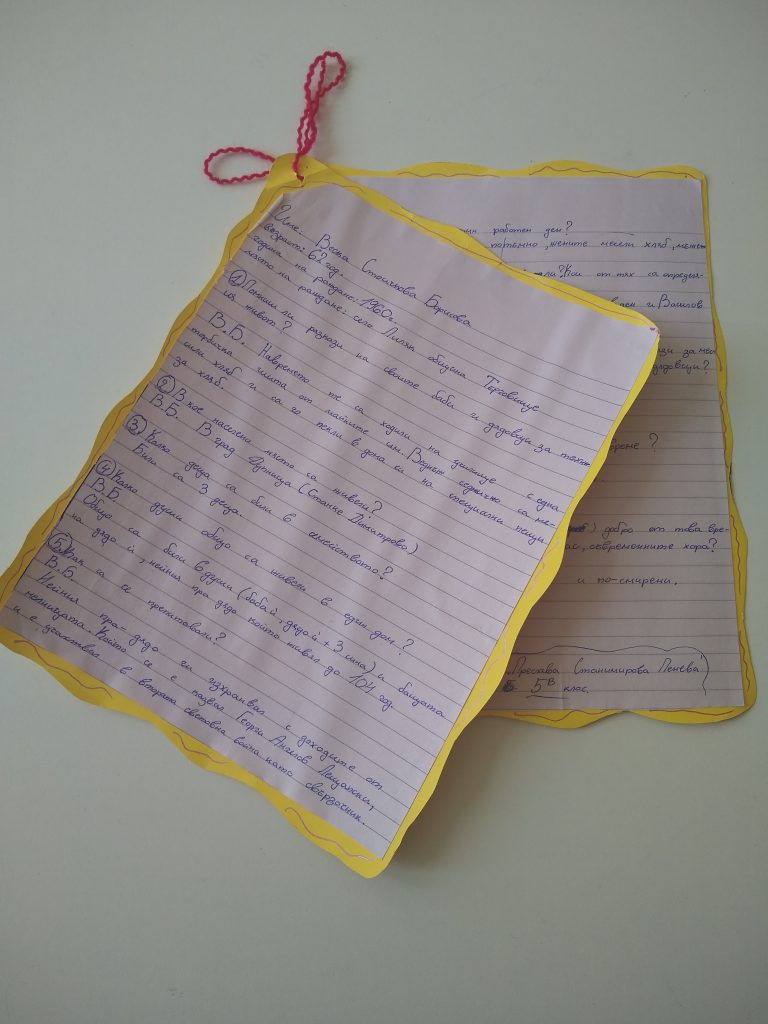 Име: Веска Стоичкова Борисова
възраст: 62 год.
година на раждане: 1960г.
място на раждане: село Лиляк община Търговище
① Помниш ли разкази на своите баби и дядовци за техния
живот?
В.Б. Навремето те са ходили на училище с една
торбичка ушита от майките им. Веднъж седмично са ме-
сили хляб и са го пекли в дома си на специални пещи
за хляб.
② В кое населено място са живели?
В.Б. В град Дупница (Станке Димитрово)
③ Колко деца са били в семейството?
Били са 3 деца.
④ Колко души общо са живели в един дом?
В.Б.
Общо са били 6 души (баба ѝ, дядо ѝ + 3 сина) и бащата
на дядо ѝ, нейния пра дядо който живял до 104 год.
⑤ Как са се препитавали?
В.Б.
Нейния пра-дядо ги изхранвал с доходите от
мелницата. Който се е казвал Георги Ангелов
и е участвал в втората световна война като свързочник.
работен ден?
жените месели хляб,
ли? Кои от тях са определя-
ден и Васильов
зи за
дядовци?
време?
) добро от това вре-
ас, съвременните хора?
и по-смирени.
Преслава Станимирова Пенева
5В клас.